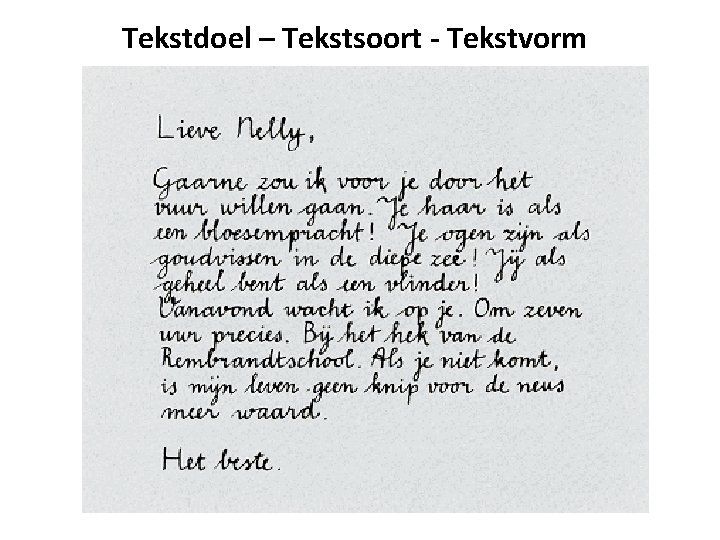 Tekstdoel – Tekstsoort - Tekstvorm
Lieve Nelly,
Gaarne zou ik voor je door het
vuur willen gaan. Je haar is als
een bloesempracht! Je ogen zijn als
goudvissen in de diepe zee! Jij als
geheel bent als een vlinder!
Vanavond wacht ik op je. Om zeven
uur precies. Bij het hek van de
Rembrandtschool. Als je niet komt,
is mijn leven geen knip voor de neus
meer waard.
Het beste.